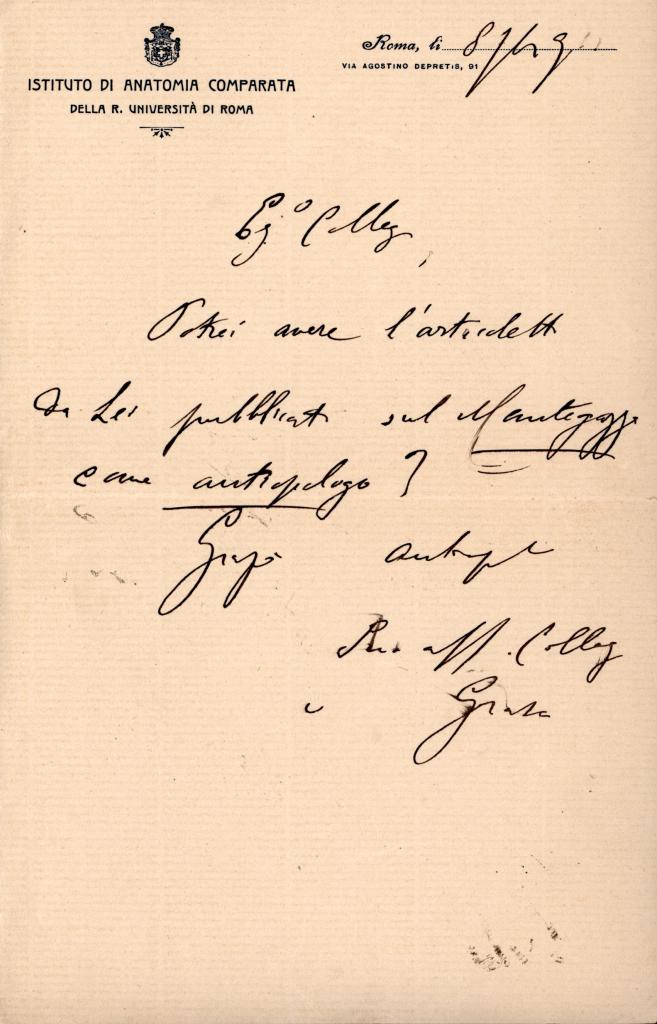 ISTITUTO DI ANATOMIA COMPARATA
DELLA R. UNIVERSITÀ DI ROMA
Roma, li 8
VIA AGOSTINO DEPRETIS, 91
Eg.º Collega,
Potrei avere l'articoletto
da Lei pubblicato sul Mantegazza
come antropologo?
Grazie anticipate
Suo aff. Collega
Grassi